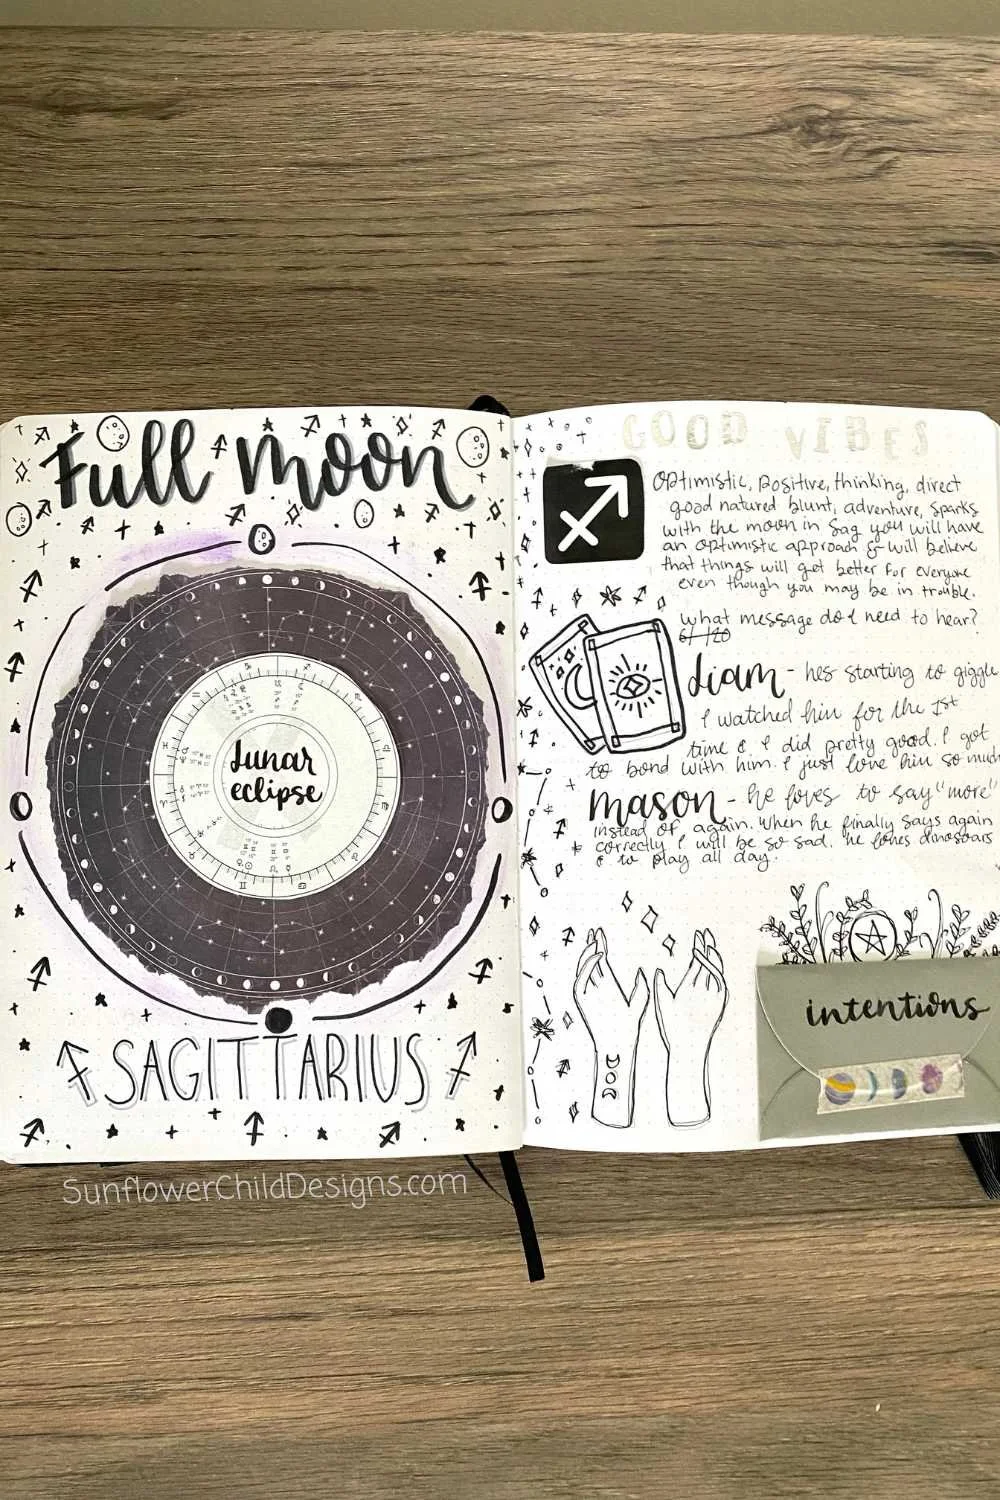 Full moon
lunar
eclipse
SAGITTARIUS
GOOD VIBES
Optimistic, positive, thinking, direct
good natured blunt, adventure, sparks
with the moon in sag you will have
an optimistic approach & will believe
that things will get better for everyone
even though you may be in trouble.
What message do I need to hear?
6/120
Liam - hes starting to giggle
I watched him for the 1st
time & I did pretty good. I got
to bond with him. I just love him so much
Mason - he loves to say "more"
instead of again. When he finally says again
correctly I will be so sad. he loves dinosaurs
& to play all day.
intentions
SunflowerChildDesigns.com